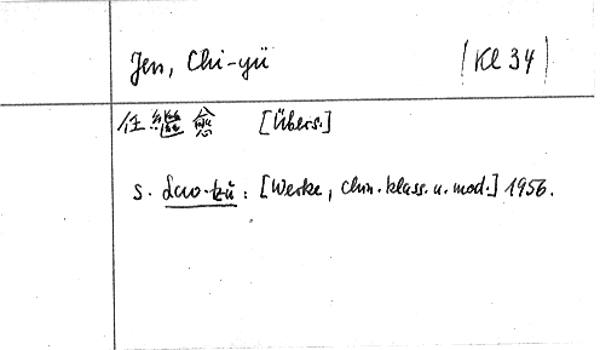 Jen, Chi-yü [Kl 34]
任繼愈 [Übers.]
s. Lao-tzŭ: [Werke, chin. klass. u. mod.] 1956.